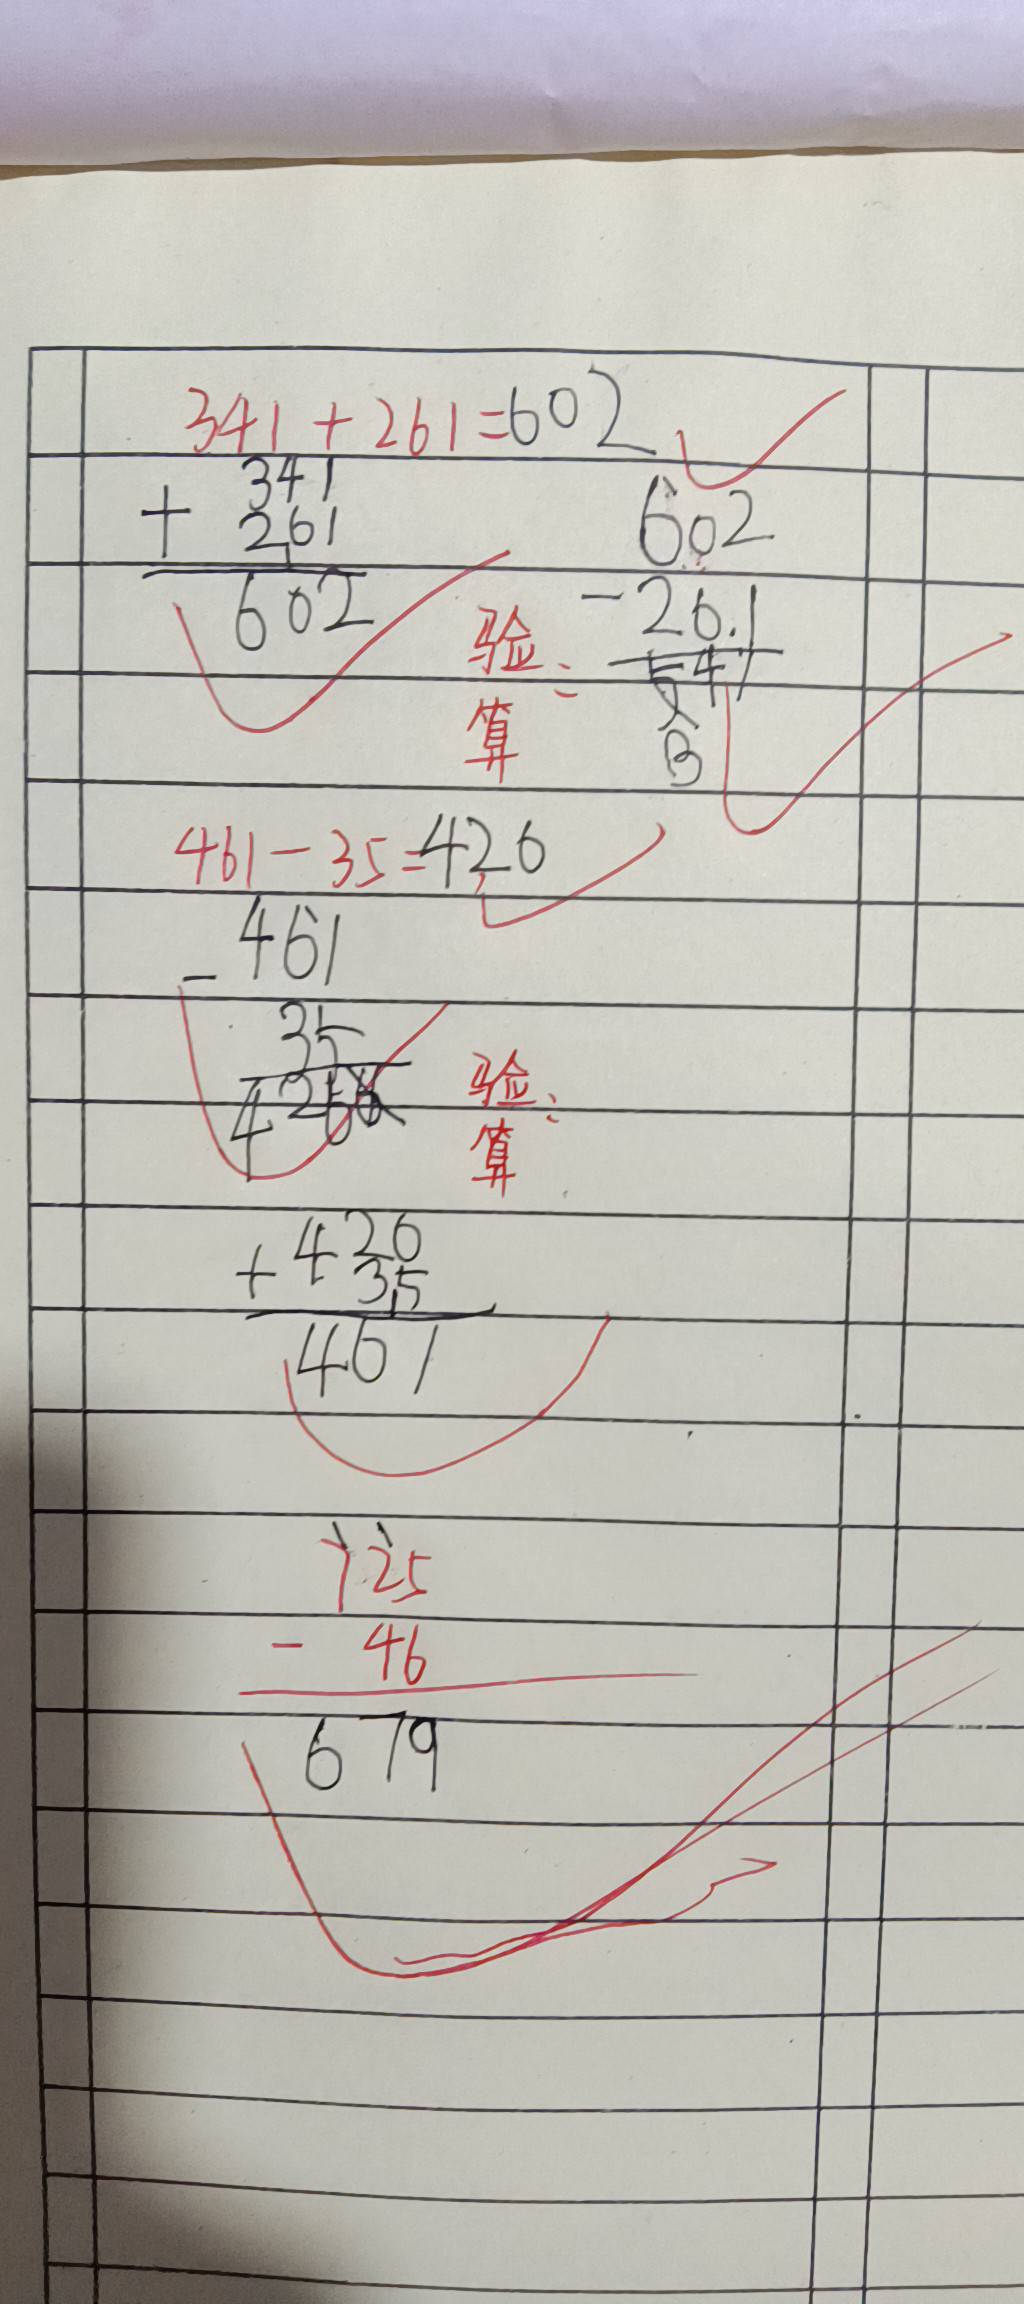 341+261=602
341
+ 261
602
验算:
602
-261
541
3
461-35=426
461
-
35
426
验算:
426
+ 35
461
725
- 46
679